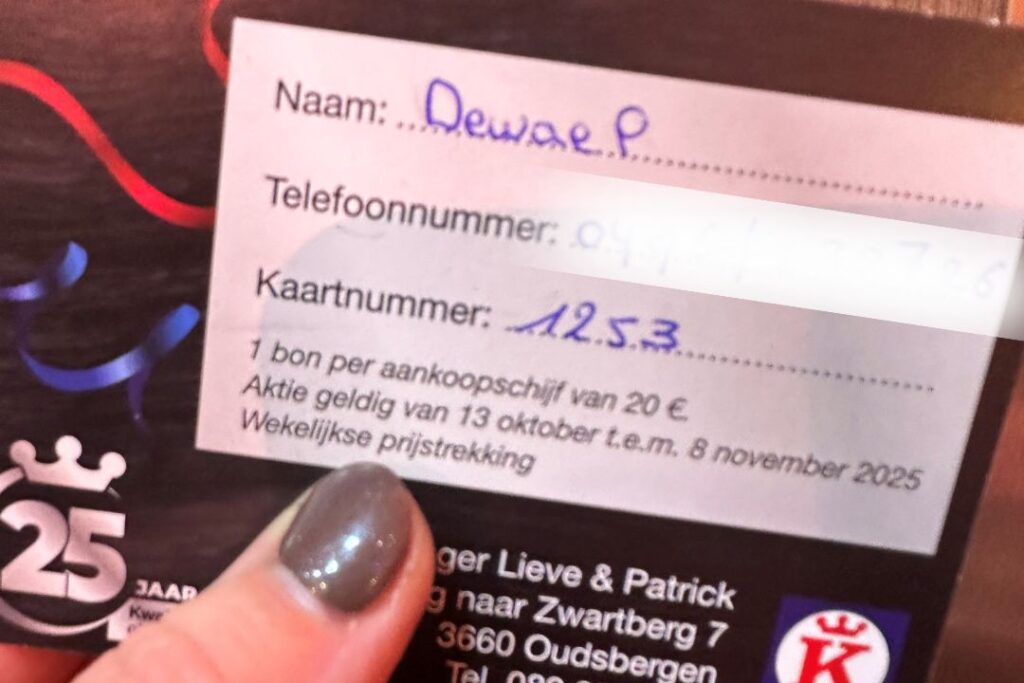 Naam: Dewae P
Telefoonnummer:
Kaartnummer: 1253
1 bon per aankoopschijf van 20 €.
Aktie geldig van 13 oktober t.e.m. 8 november 2025
Wekelijkse prijstrekking
25
JAAR
ger Lieve & Patrick
g naar Zwartberg 7
3660 Oudsbergen
Tel.
K